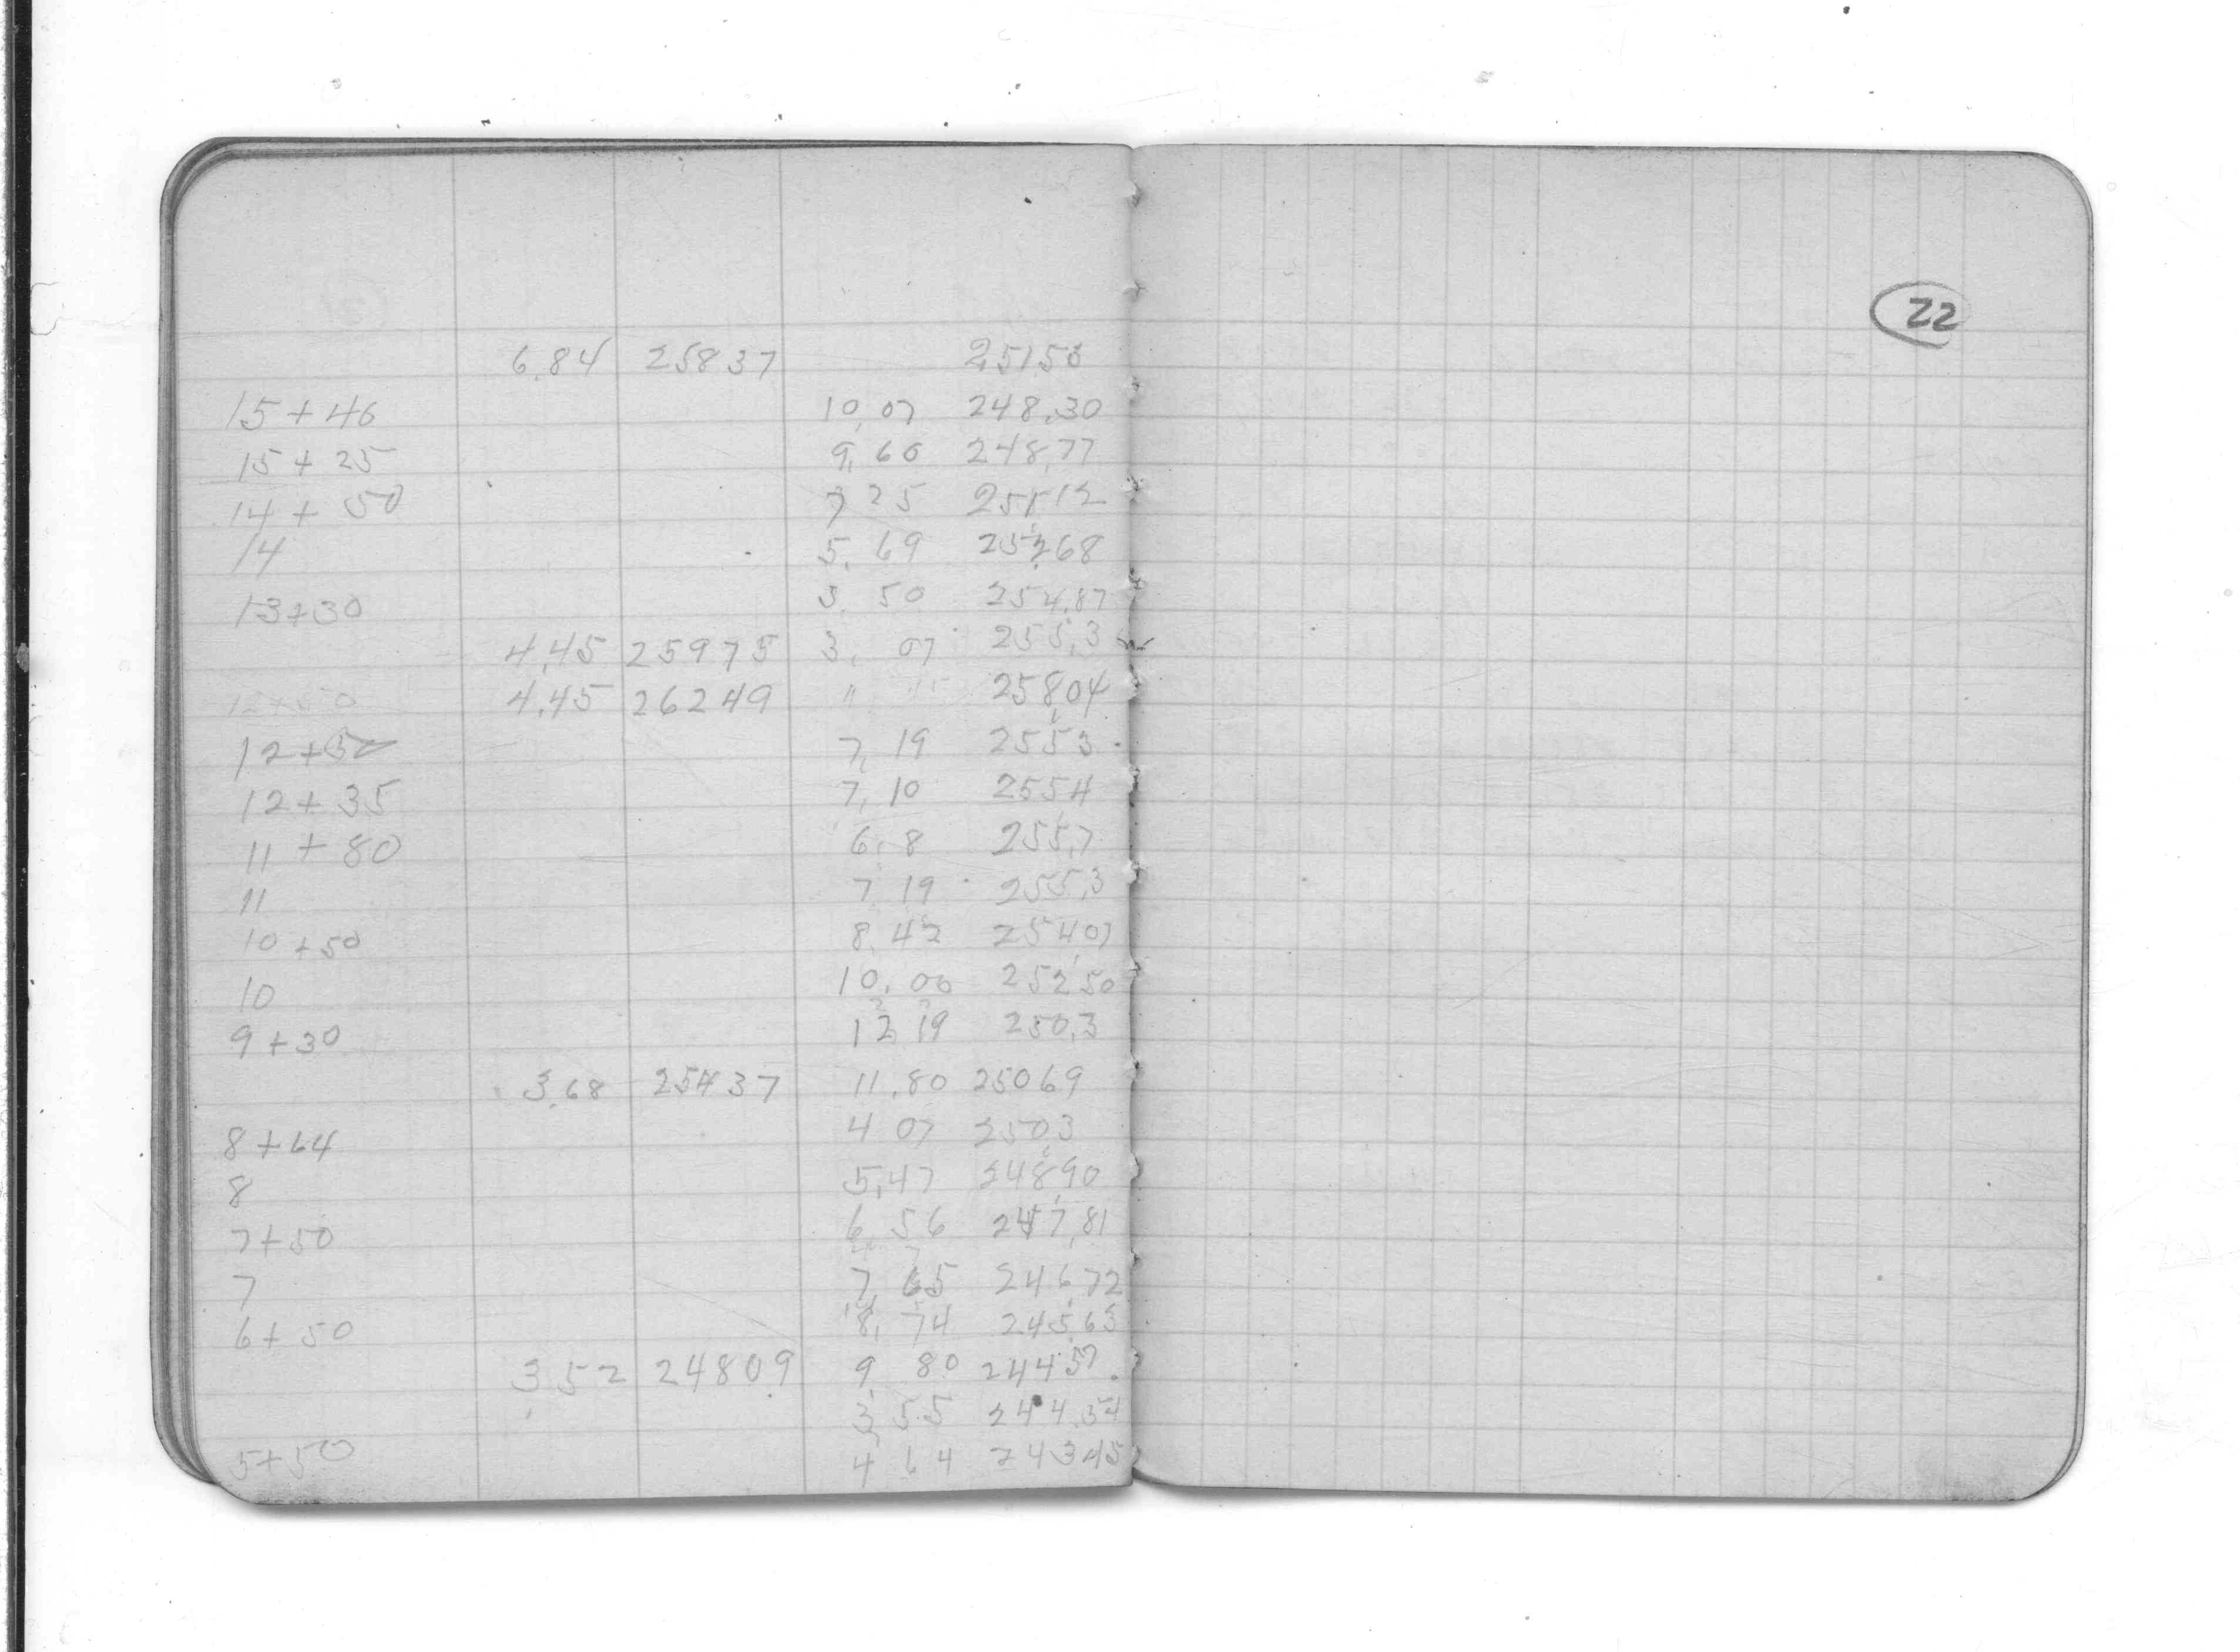 22
6.84 25837 25153
15+46 10,07 248.30
15+25 9,60 248,77
14+50 7 25 251 12
14 5.69 252 68
13+30 3.50 254.87
4.45 25975 3. 07 255.3
12+50 4.45 26249 " 25804
12+50 7,19 2553
12+35 7,10 2554
11+80 6.8 255.7
11 7 19 255.3
10+50 8.42 25407
10 10.00 25250
9+30 12 19 250.3
3.68 25437 11.80 25069
8+64 4 07 2503
8 5,47 24890
7+50 6,56 247,81
7 7,65 246,72
6+50 8,74 245,63
3 52 24809 9 80 24457
3 55 244.54
5+50 4 64 24345